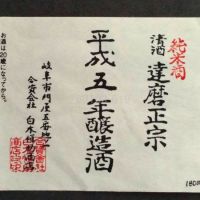 純米酒
清酒 達磨正宗
平成五年醸造酒
岐阜市門屋
合資会社 白木恒助商店
お酒は20歳になってから。